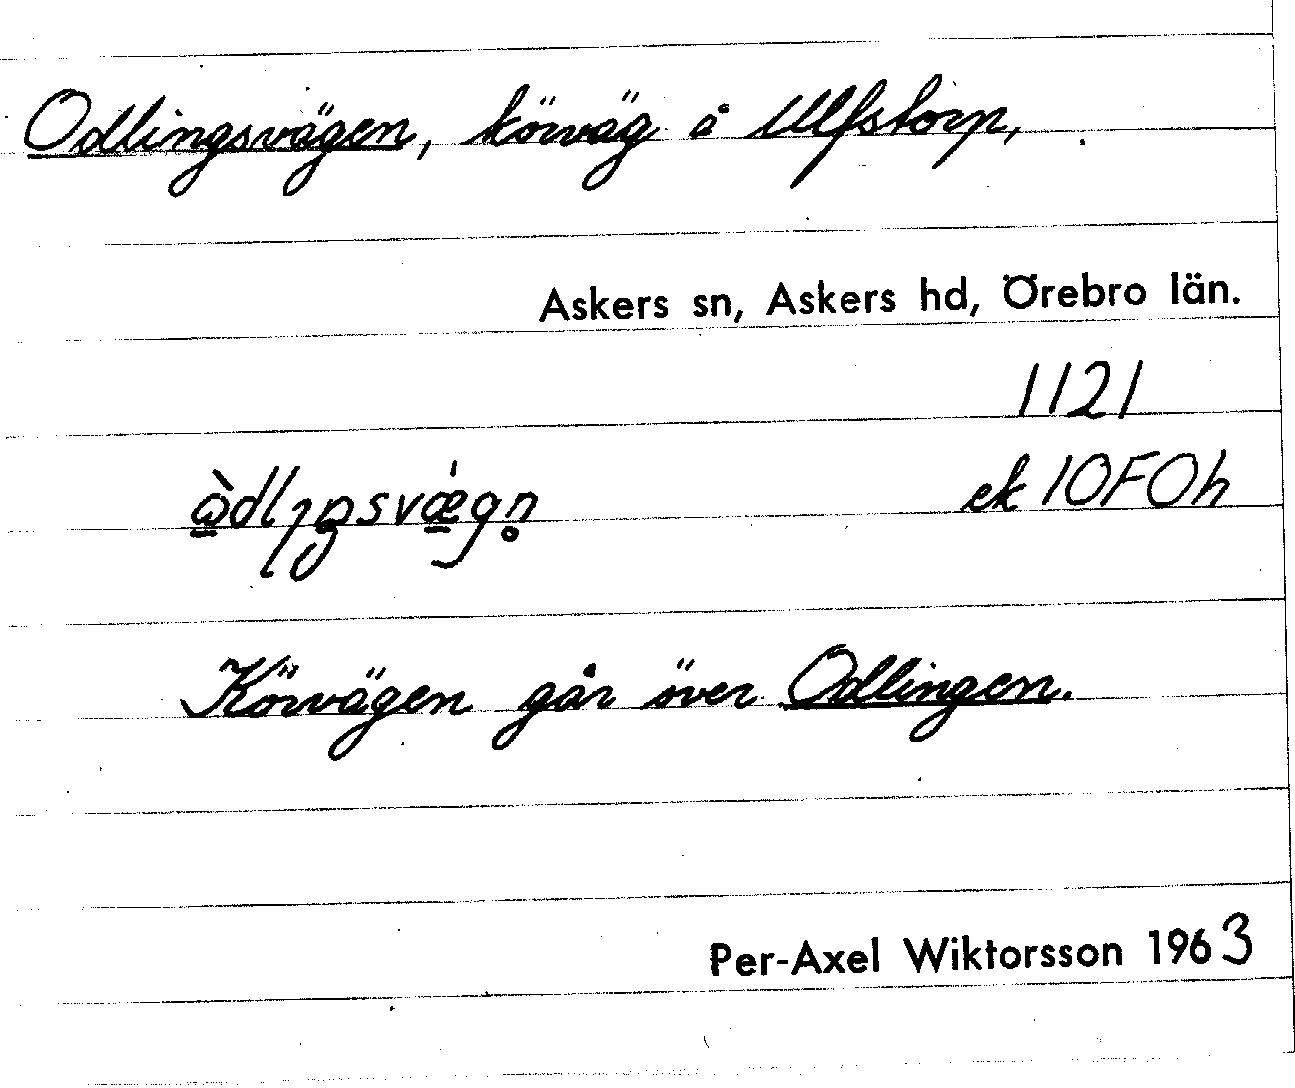 Odlingsvägen, körväg å Ulfstorp,
Askers sn, Askers hd, Örebro län.
1121
ek 10F0h
Körvägen går över Odlingen.
Per-Axel Wiktorsson 1963